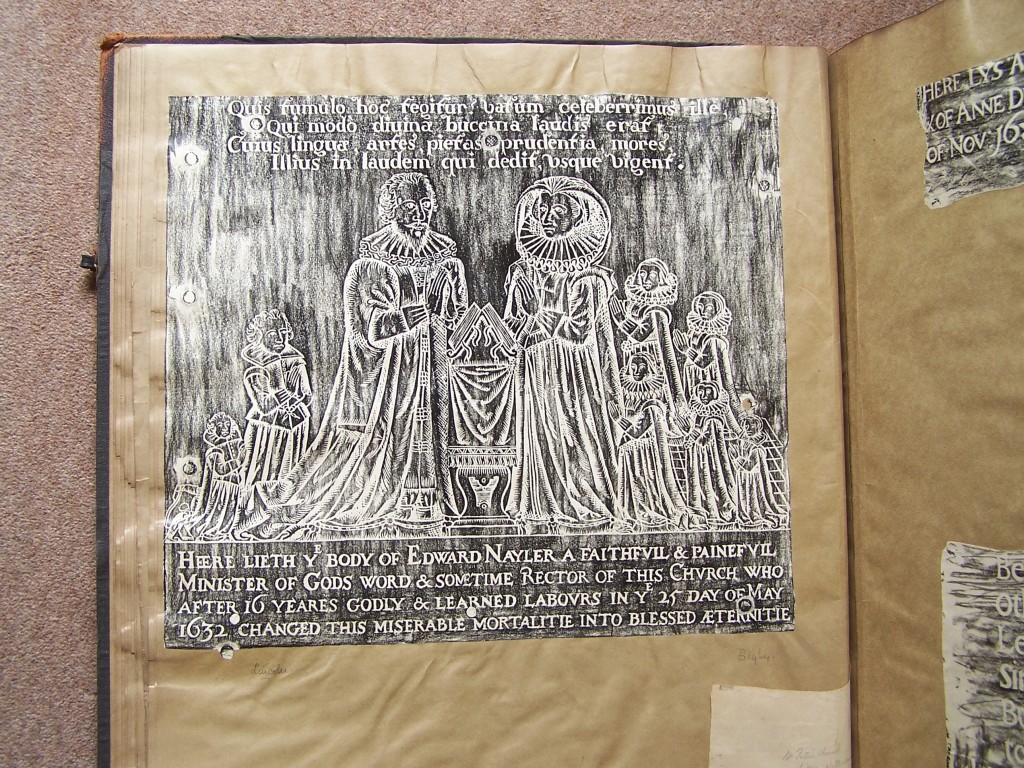 Quis tumulo hoc tegitur? Vatum celeberrimus ille
Qui modo diuina buccina laudis erat,
Cuius linguæ artes pietas prudentia mores
Illius in laudem qui dedit Vsque Vigent.
HEERE LIETH Yᴱ BODY OF EDWARD NAYLER A FAITHFVIL & PAINEFVIL
MINISTER OF GODS WORD & SOMETIME RECTOR OF THIS CHVRCH WHO
AFTER 16 YEARES GODLY & LEARNED LABOVRS IN Yᴱ 25 DAY OF MAY
1632 CHANGED THIS MISERABLE MORTALITIE INTO BLESSED ÆTERNITIE
Lincoln
Bigby.
HERE LYS A
OF ANNE D
OF NOV 16
Be